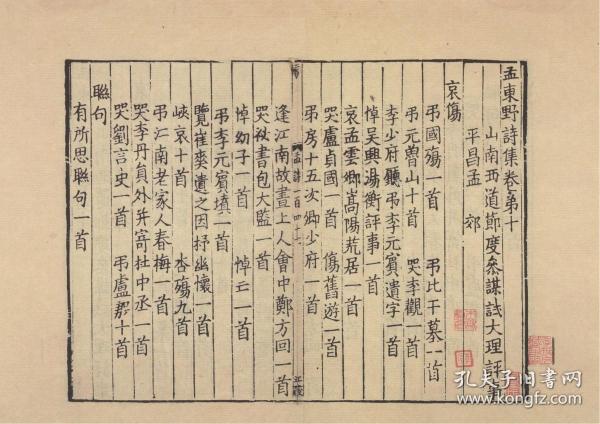 孟東野詩集卷第十
山南西道節度參謀試大理評事
平昌孟 郊
哀傷
弔國殤一首 弔比干墓一首
弔元魯山十首 哭李觀一首
李少府廳弔李元賓遺字一首
悼吳興湯衡評事一首
哀孟雲卿嵩陽荒居一首
哭盧貞國一首 傷舊遊一首
弔房十五次卿少府一首
逢江南故晝上人會中鄭方回一首
哭祕書包大監一首
悼幼子一首 悼亡一首
弔李元賓墳一首
覽崔爽遺文因抒幽懷一首
峽哀十首 杏殤九首
弔江南老家人春梅一首
哭李丹員外并寄杜中丞一首
哭劉言史一首 弔盧殷十首
聯句
有所思聯句一首
孔夫子旧书网
www.kongfz.com